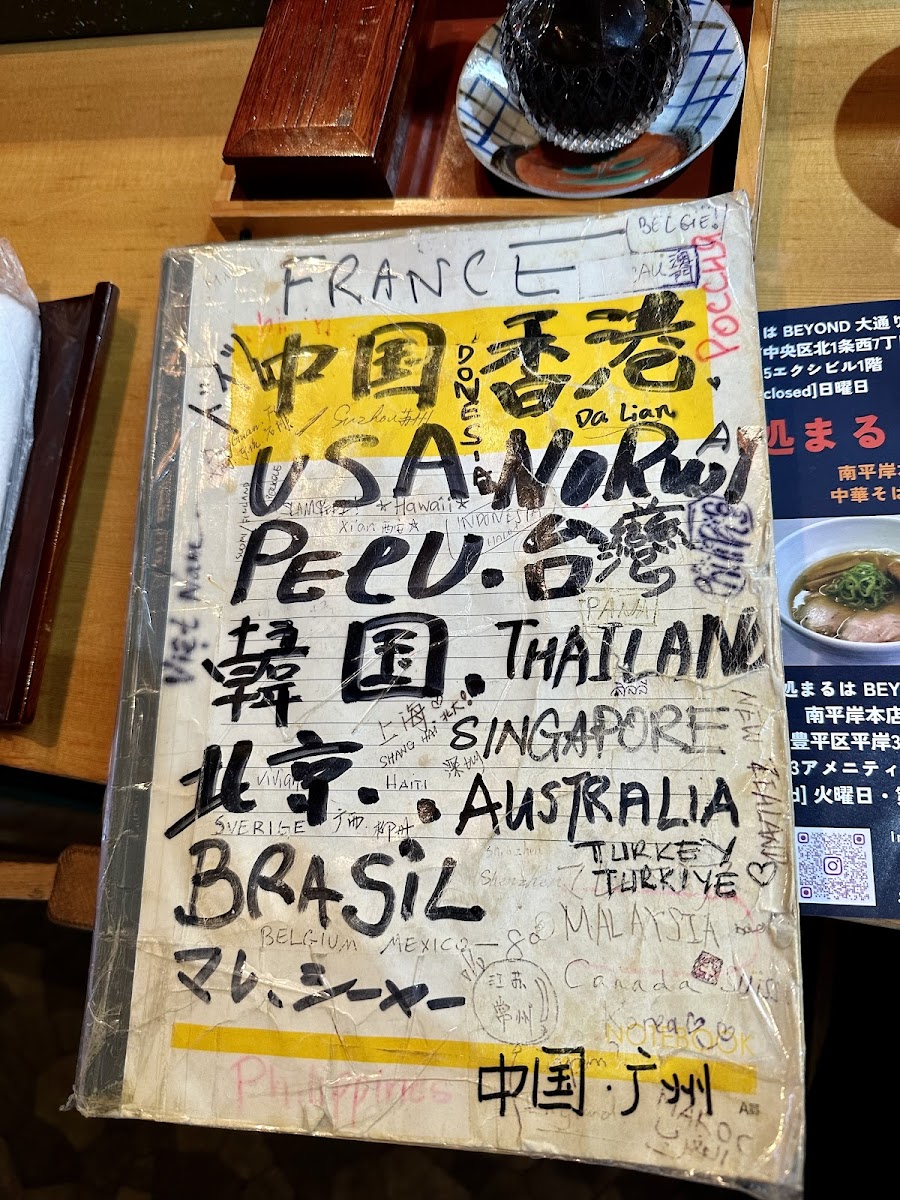 BELGIE!
FRANCE
澳門
Россия
ドイツ
中国 香港
DONESIA
Suzhou 苏州
Da Lian
USA. NORWAY
SLAM
*Hawaii*
Xian 西安
INDONESIA
PERU. 台灣
Việt Nam
PANA
韓国. THAILAND
上海
SHANG HAI
北大!
深圳
SINGAPORE
NEW ZEALAND ♡
北京. . AUSTRALIA
Vivian
HAITI
SVERIGE
广西
TURKEY
TÜRKIYE
Shenzhen
BRASiL
BELGIUM
MEXICO
MALAYSIA
マレ、シーヤー
江苏
常州
Canada
Korea
NOTEBOOK
Philippines
中国・广州
は BEYOND 大通り
中央区北1条西7丁
5エクシビル1階
closed]日曜日
処まる
南平岸
中華そば
処まるは BEY
南平岸本店
豊平区平岸3
3アメニティ
d] 火曜日・第